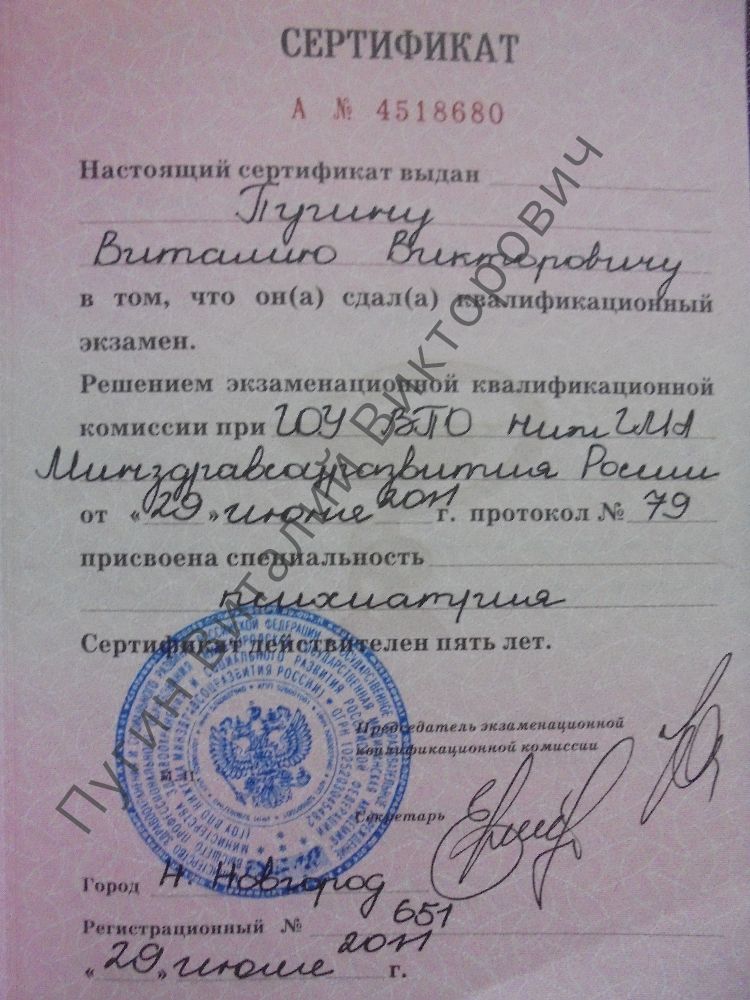 СЕРТИФИКАТ
А № 4518680
Настоящий сертификат выдан
Пугину
Виталию Викторовичу
в том, что он(а) сдал(а) квалификационный
экзамен.
Решением экзаменационной квалификационной
комиссии при ГОУ ВПО НижГМА
Минздравсоцразвития России
от «29» июня 2011 г. протокол № 79
присвоена специальность
психиатрия
Сертификат действителен пять лет.
Председатель экзаменационной
квалификационной комиссии
М.П.
Секретарь
Город Н. Новгород
Регистрационный № 651
«29» июня 2011 г.
Пугин Виталий Викторович